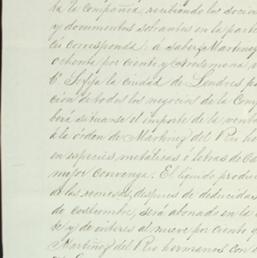 ta la Compañia, recibiendo los docum
y documentos sobrantes en la parte
les corresponda: a saber, Martinez
ochenta por ciento y Aroztemana,
6ª Se fija la ciudad de Londres pa
cion de todos los negocios de la Comp
berá situarse el importe de la venta
á la órden de Martinez del Rio ha
en especies, metalicas ó letras de Ca
mejor Convenga. El líquido produ
de las remesas, despues de deducidas
de costumbre, será abonado en la
te y de interes al nueve por ciento
Martinez del Rio hermanos con